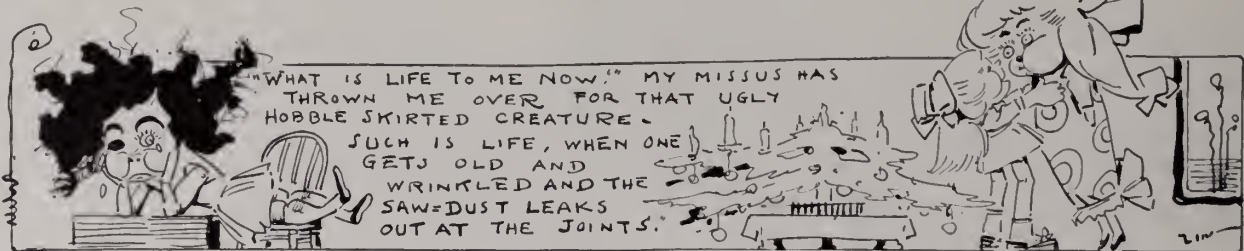 "WHAT IS LIFE TO ME NOW." MY MISSUS HAS
THROWN ME OVER FOR THAT UGLY
HOBBLE SKIRTED CREATURE.
SUCH IS LIFE, WHEN ONE
GETS OLD AND
WRINKLED AND THE
SAW=DUST LEAKS
OUT AT THE JOINTS."
ZIM